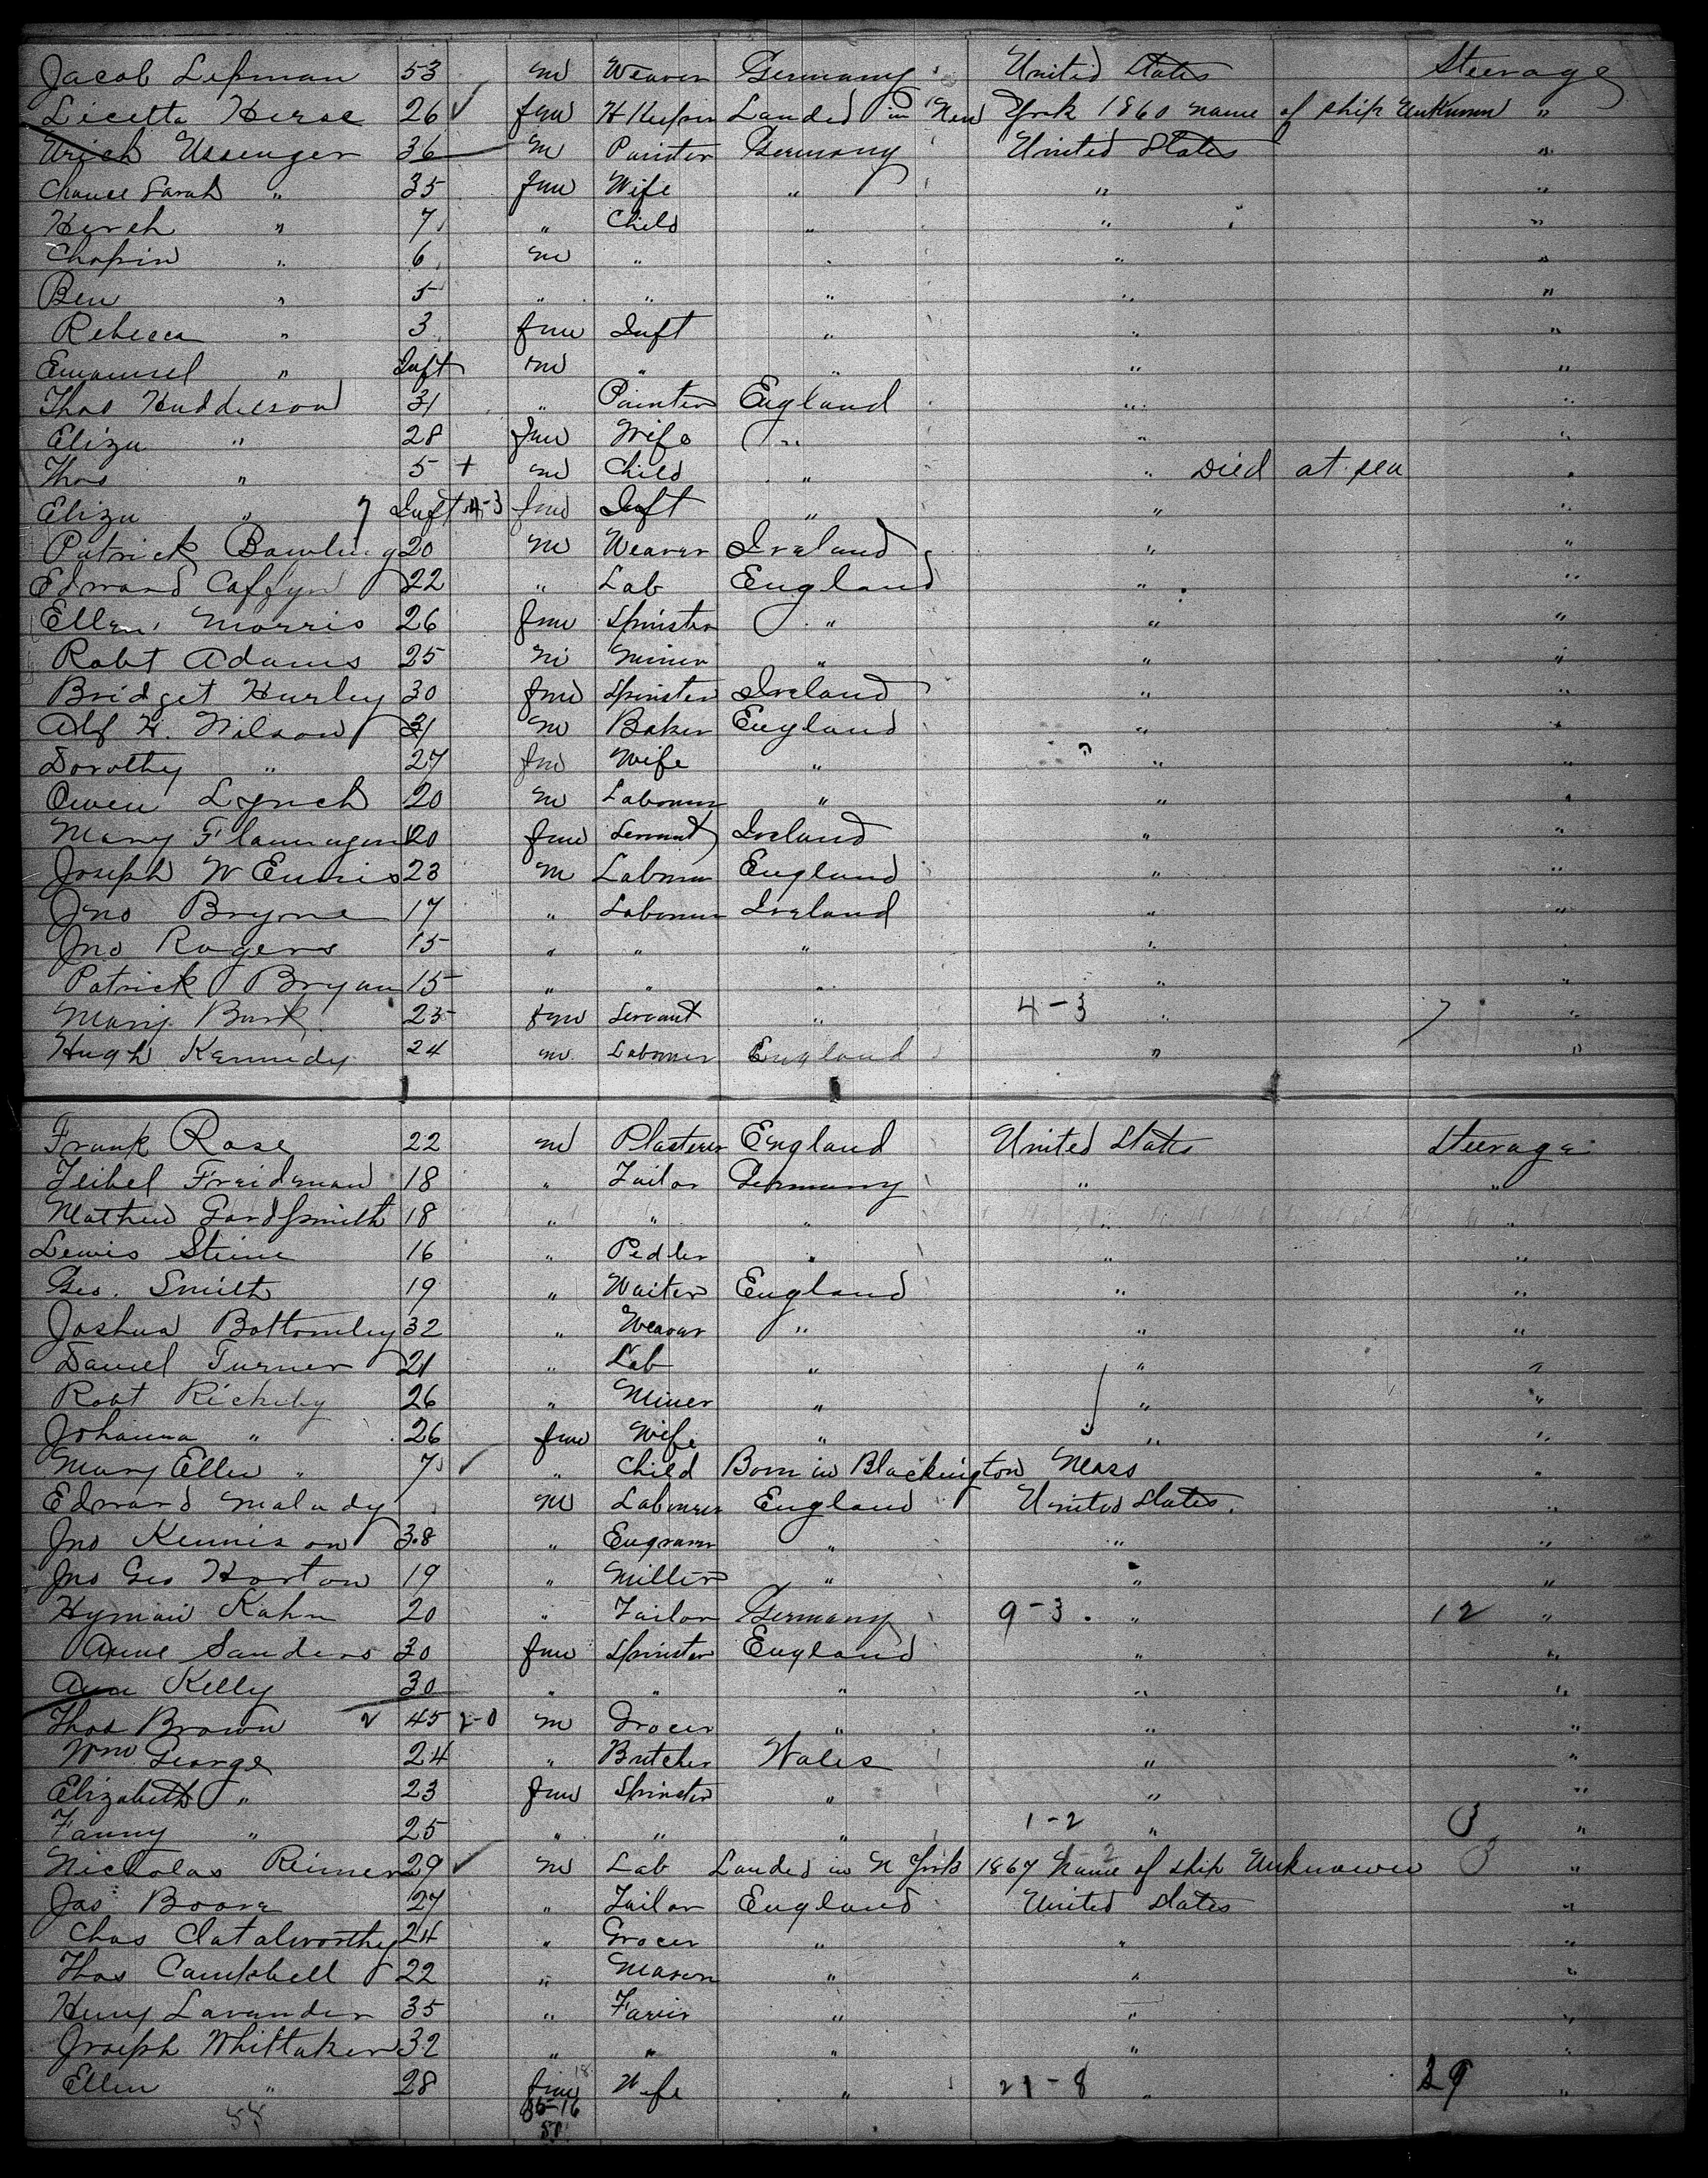 Jacob Lipman 53 m Weaver Germany United States Steerage
Licetta Herse 26 ✓ fm H Keeper Landed in New York 1860 name of ship Unknown "
Urich Ussenger 36 m Germany United States "
Sarah " 35 fm Wife " " "
Hirsh " 7 " Child " " "
Chapin " 6 m " " " "
Ben " 5 " " " " "
Rebecca " 3 fm Inft " " "
Emanuel " Inft m " " " "
Thos Huddleson 31 " Painter England " "
Eliza " 28 fm Wife " " "
Thos " 5 + m Child " " Died at sea "
Eliza " 7 Inft 4-3 fm Inft " " "
Patrick Bowling 20 m Weaver Ireland " "
Edward Caffyn 22 " Lab England " "
Ellen Morris 26 fm Spinster " " "
Robt Adams 25 m Miner " " "
Bridget Hurley 30 fm Spinster Ireland " "
Alf H. Wilson 31 m Baker England " "
Dorothy " 27 fm Wife " " "
Owen Lynch 20 m Labourer " " "
Mary Flannagan 20 fm Servant Ireland " "
Joseph W Ennis 23 m Labourer England " "
Jno Bryne 17 " Labourer Ireland " "
Jno Rogers 15 " " " " "
Patrick Bryan 15 " " " " "
Mary Burk 25 fm Servant " 4-3 " 7 "
Hugh Kennedy 24 m Labourer England " "
Frank Rose 22 m Plasterer England United States Steerage
Feibel Freidman 18 " Tailor Germany " "
Mathew 18 " " " " "
Lewis Stine 16 " Pedler " " "
Geo. Smith 19 " Waiter England " "
Joshua Bottomley 32 " Weaver " " "
Daniel Turner 21 " Lab " " "
Robt Rickeby 26 " Miner " " "
Johanna " 26 fm Wife " " "
Mary Ellen " 7 ✓ " Child Born in Blackington Mass "
Edward Malady m Labourer England United States "
Jno Kennison 38 " Engraver " " "
Jno Geo Horton 19 " Miller " " "
Hyman Kahn 20 " Tailor Germany 9-3 " 12 "
Anne Sanders 30 fm Spinster England " "
Ann Kelly 30 " " " " "
Thos Brown 2 45 2-0 m Grocer " " "
Wm George 24 " Butcher Wales " "
Elizabeth " 23 fm Spinster " " "
Fanny " 25 " " " 1-2 " 3 "
Nicholas Rimer 29 ✓ m Lab Landed in N York 1867 Name of ship Unknown 3 "
Jas Boore 27 " Tailor England United States "
Chas Clatalworthy 24 " Grocer " " "
Thos Campbell 22 " Mason " " "
Henry Lavander 35 " " " "
Joseph Whittaker 32 " " " " "
Ellen " 28 fm Wife " 21-8 " 29 "